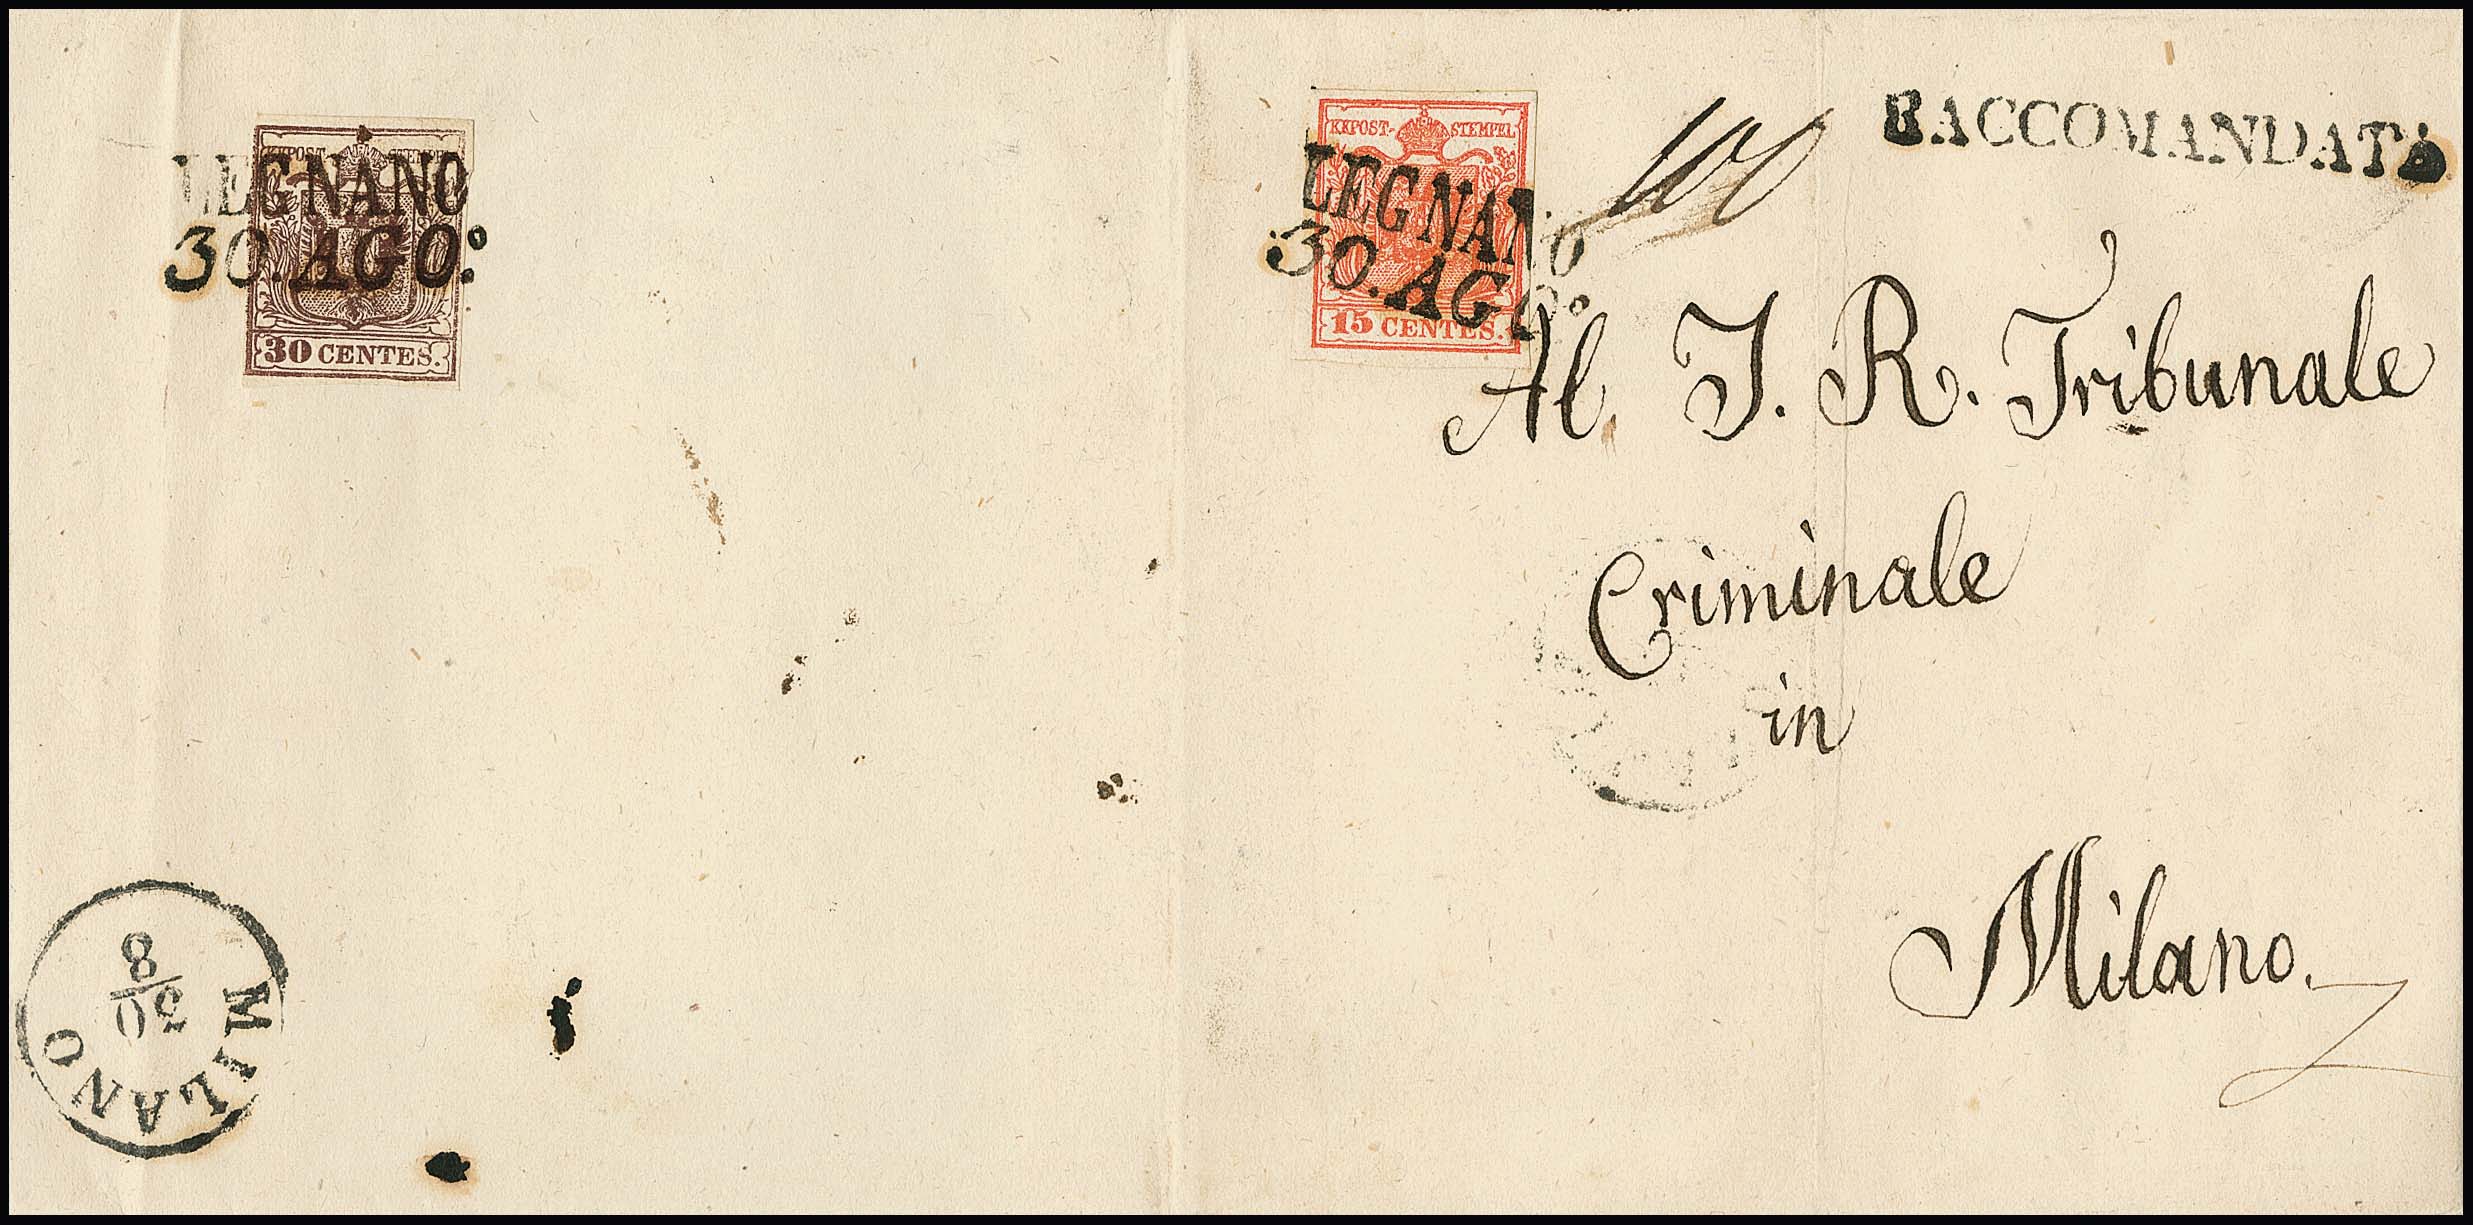 KKPOST- STEMPEL
LEGNANO
30. AGO.
30 CENTES.
KKPOST- STEMPEL
LEGNANO
30. AGO.
15 CENTES.
RACCOMANDATA
Al I. R. Tribunale
Criminale
in
Milano.
MILANO
30
8